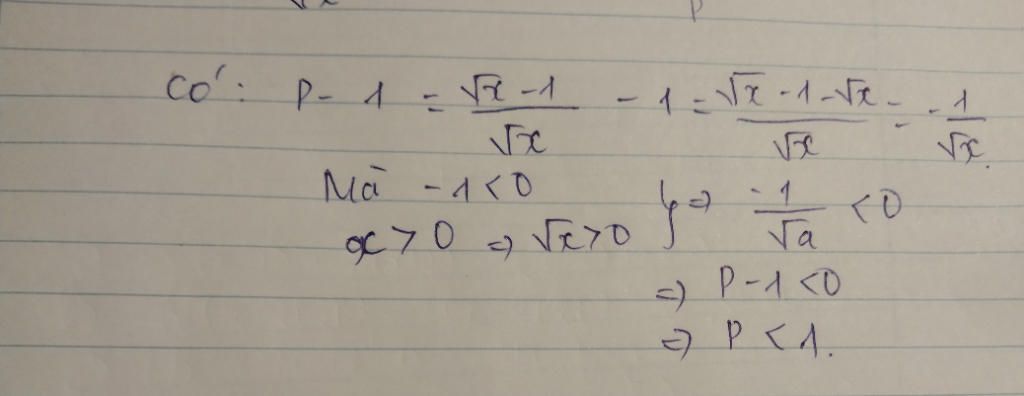 Có: P - 1 = √x - 1 / √x - 1 = √x - 1 - √x / √x = -1 / √x.
Mà -1 < 0
x > 0 => √x > 0 } => -1 / √a < 0
=> P - 1 < 0
=> P < 1.